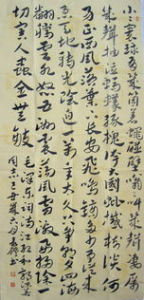 小小寰球有几个苍蝇碰壁嗡嗡叫几声凄厉
几声抽泣蚂蚁缘槐夸大国蚍蜉撼树谈何
易正西风落叶下长安飞鸣镝多少事从来
急天地转光阴迫一万年太久只争朝夕四海
翻腾云水怒五洲震荡风雷激要扫除一
切害人虫全无敌 毛泽东词满江红和郭沫若
同志